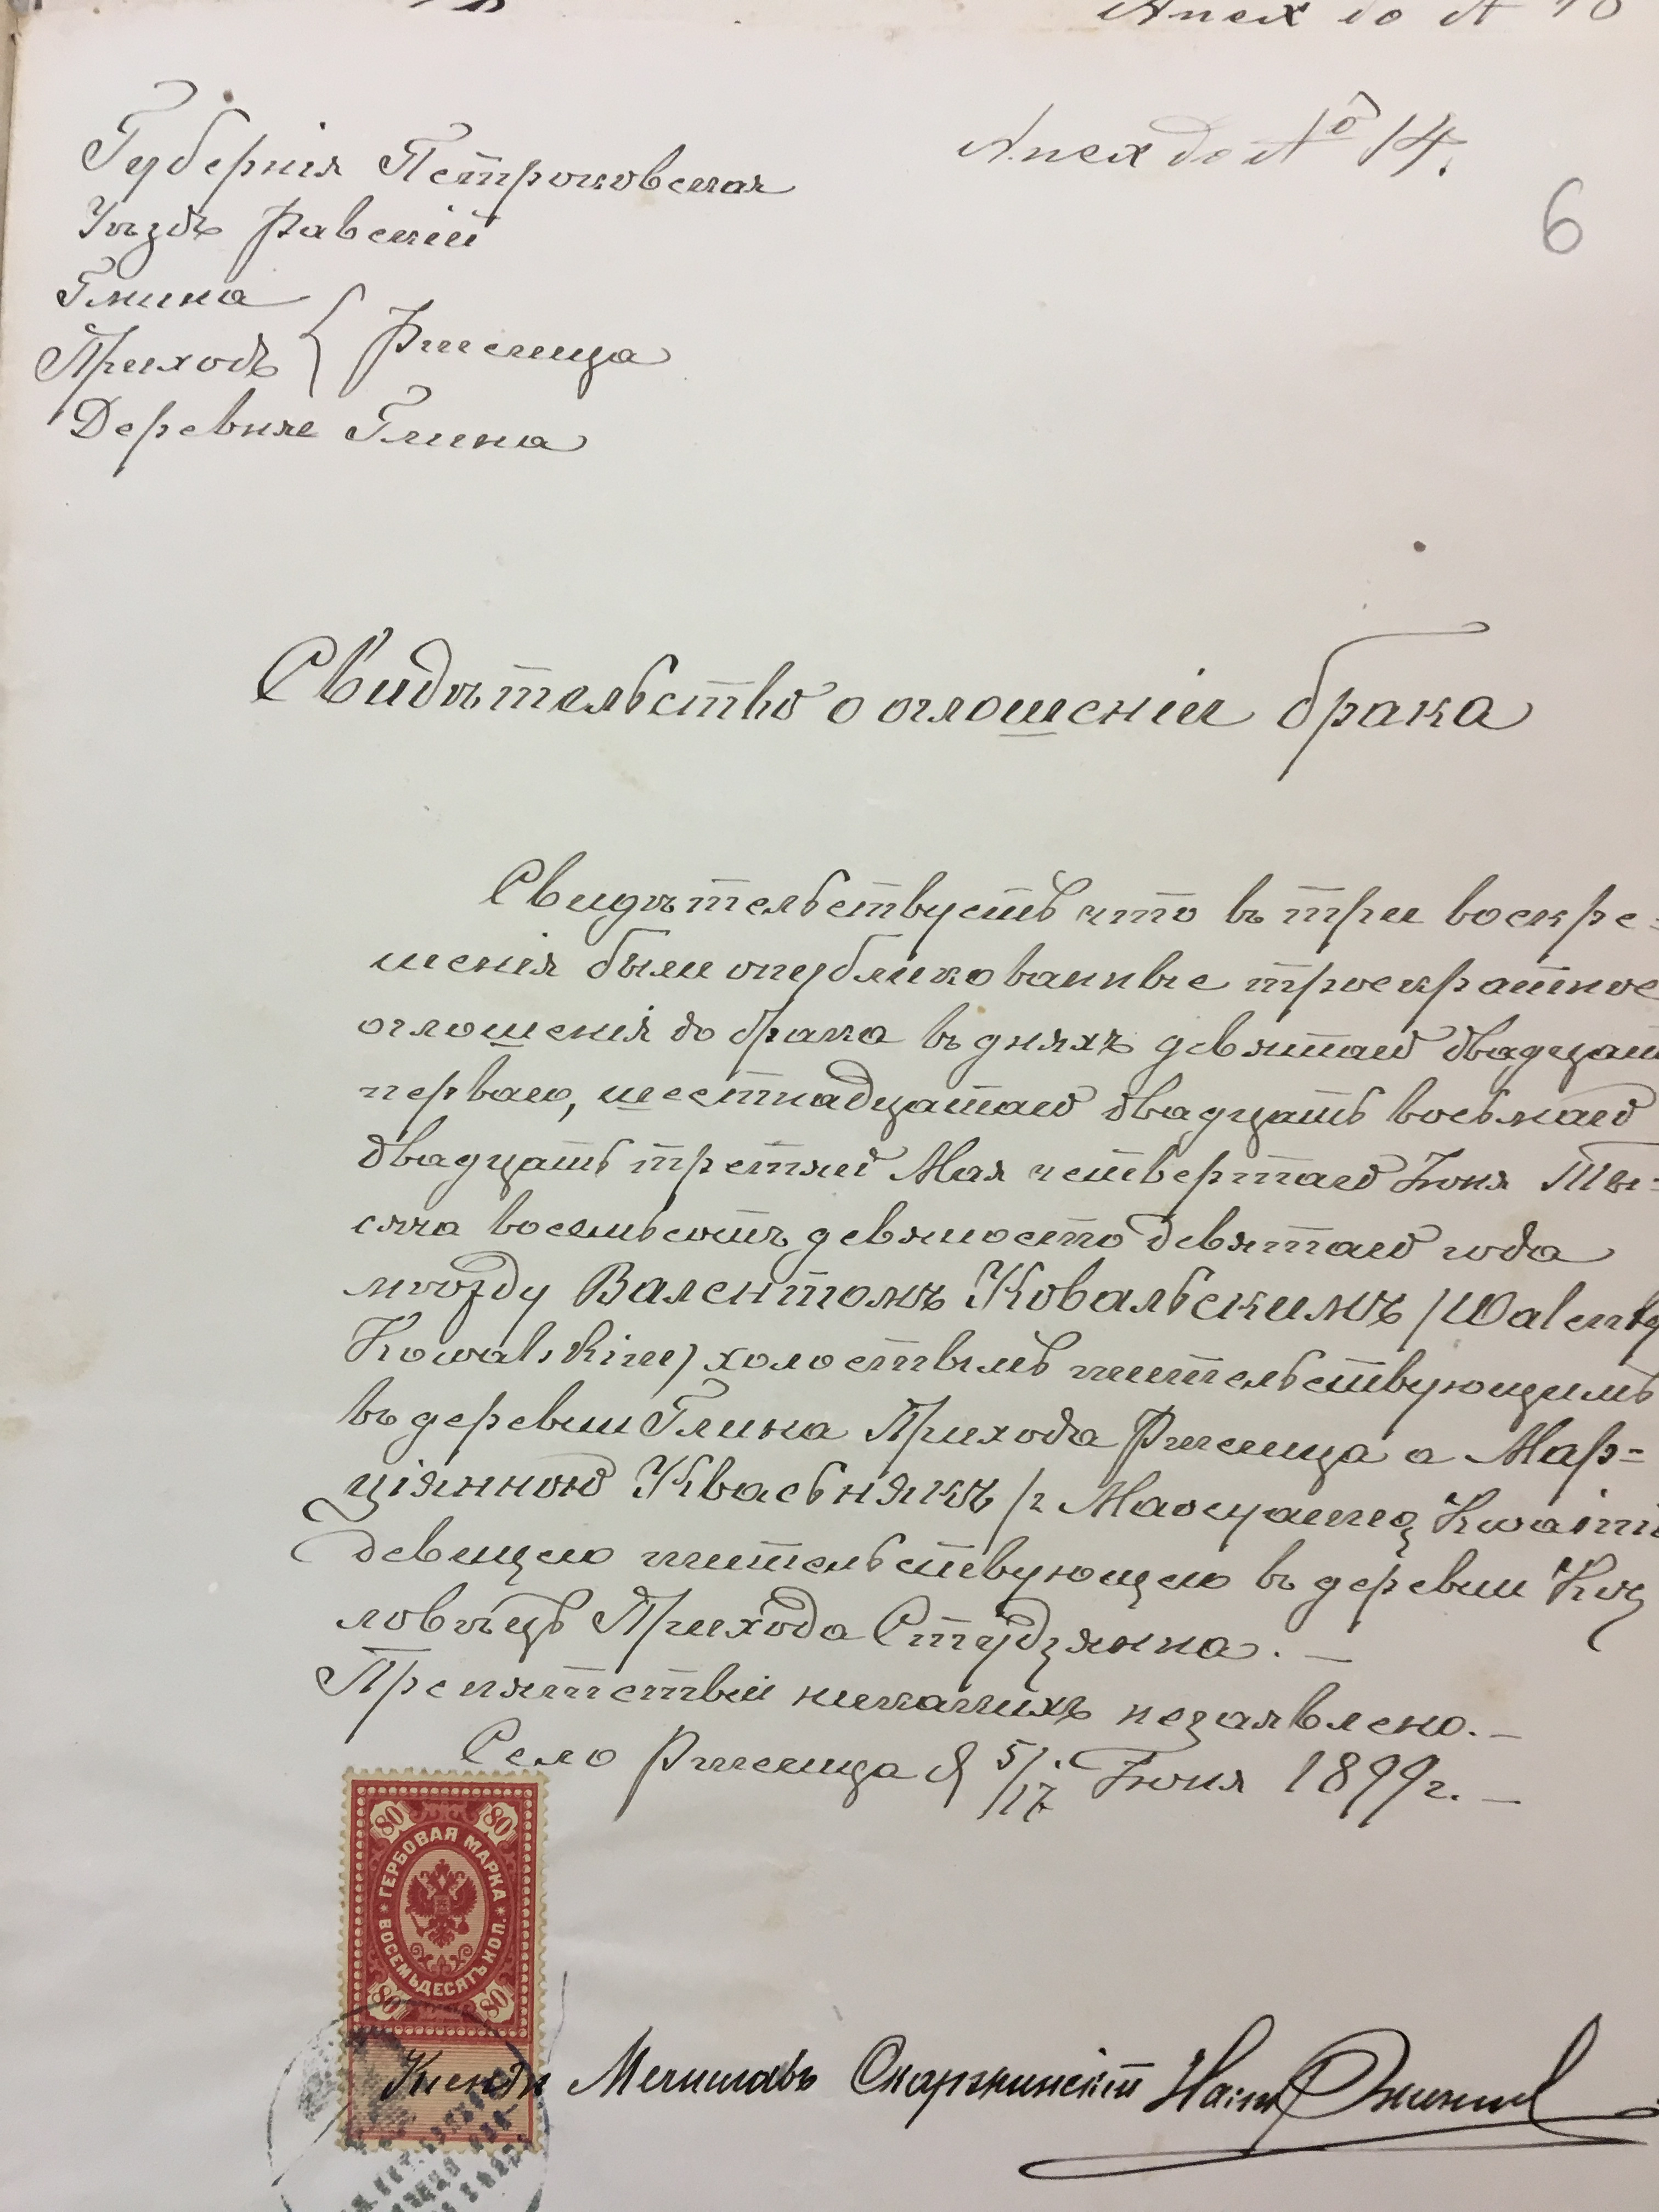 Anex do A 10
Anex do No 14.
6
Губернія Петроковская
Уѣздъ Равскій
Гмина
Приходъ { Ржечица
Деревня Глина
Свидѣтельство о оглошеніи брака
Свидѣтельствуетъ что въ три воскре=
шенія были опубликованные троекратное
оглошенія до брака въ дняхъ девятаго двадцат
перваго, шестнадцатаго двадцать восьмаго
двадцать третяго Мая четвертаго Іюня Ты=
сяча восемьсотъ девяносто девятаго года
между Валентомъ Ковальскимъ /Walenty
Kowalskim/ холостымъ жительствующимъ
въ деревни Глина Прихода Ржечица а Мар=
ціянною Квасьнякъ /z Marcyanną Kwaśni
девицею жительствующею въ деревни Коз
ловѣцъ Прихода Студзянна. —
Препятствій никакихъ незаявлено. —
Село Ржечица д 5/17 Іюня 1899 г. —
80 80
ГЕРБОВАЯ МАРКА
ВОСЕМЬДЕСЯТЪ КОП.
80 80
Ксендзъ Мечиславъ Скаржинскій